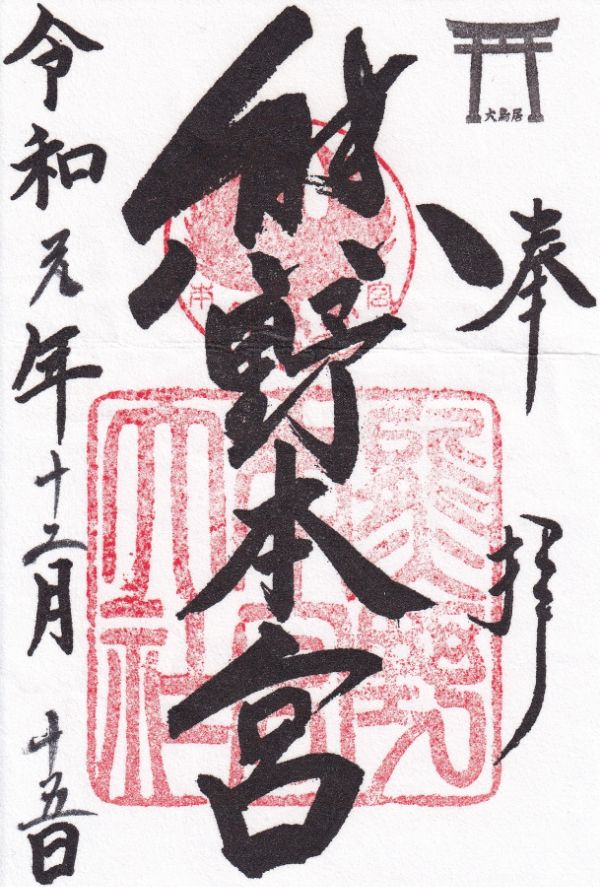 大鳥居
奉拝
熊野本宮
熊野本宮大社
令和元年十二月十五日